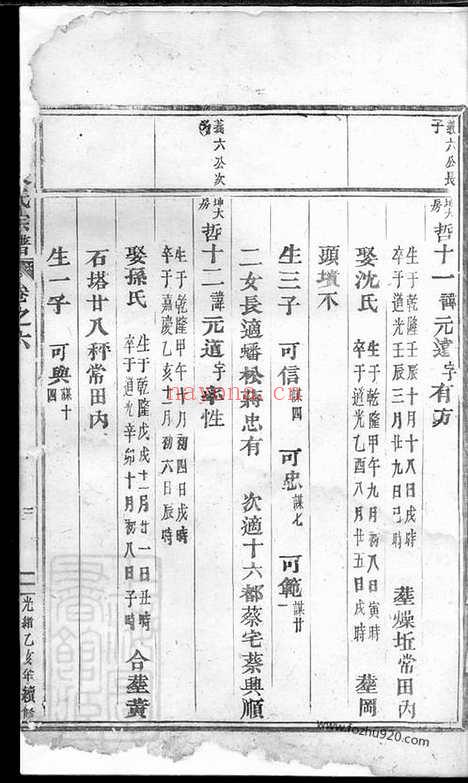 義六公長子
坤大房
哲十一 諱元達 字有方
生于乾隆壬辰十月十八日戌時
卒于道光壬辰三月廿九日己時
塟燥坵常田内
娶沈氏
生于乾隆甲午九月初八日寅時
卒于道光乙酉八月廿五日戌時
塟岡
頭墳不
生三子 可信謀四 可忠謀七 可範謀廿一
二女長適蟠松蔣忠有 次適十六都蔡宅蔡興順
義六公次子
坤大房
哲十二 諱元道 字率性
生于乾隆甲午月初四日戌時
卒于嘉慶乙亥十月初六日辰時
娶孫氏
生于乾隆戊戌十一月廿一日丑時
卒于道光辛卯十月初八日子時
合塟黄
石塔廿八秤常田内
生一子 可興謀十四
氏宗譜
卷之六
三
光緒乙亥年續修
nayona.cn
www.fozhu920.com